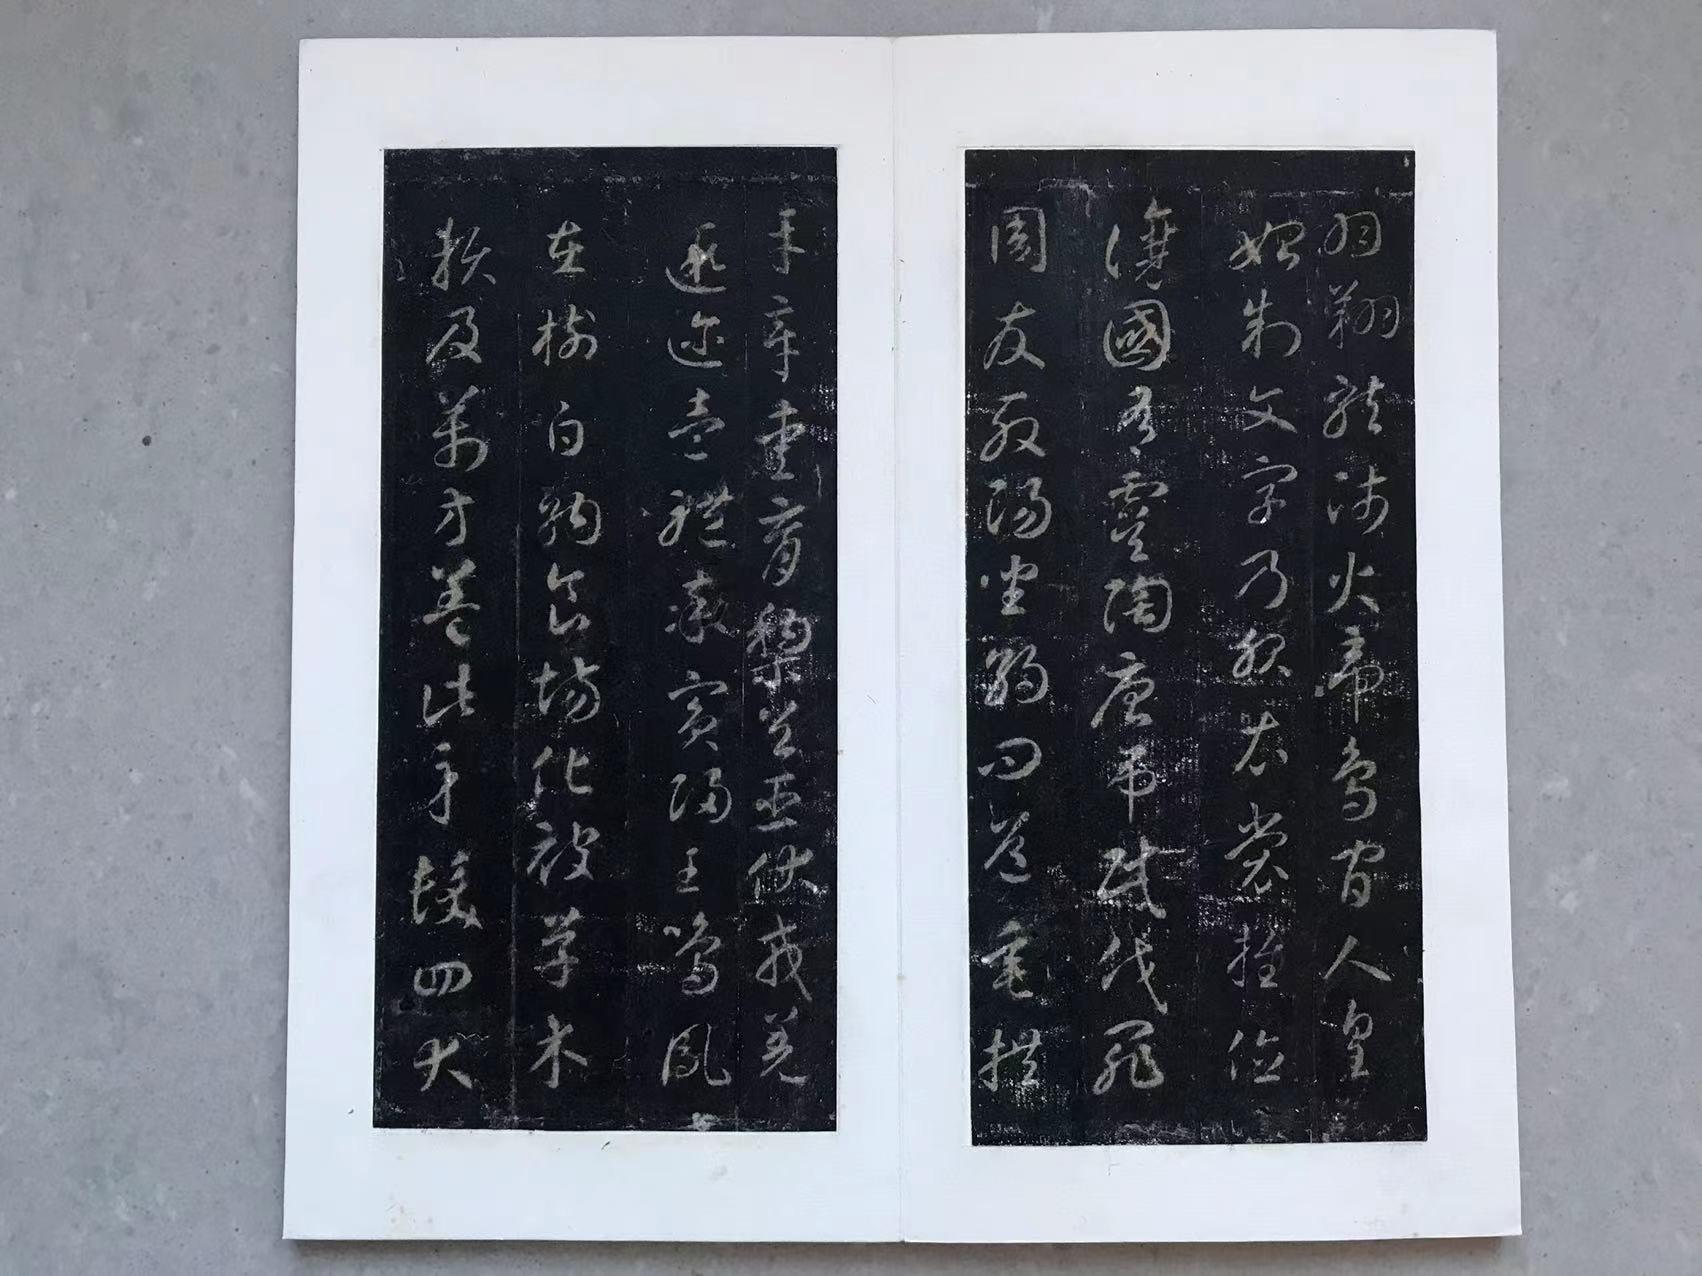 羽翔龍師火帝鳥官人皇
始制文字乃服衣裳推位
讓國有虞陶唐弔民伐罪
周發殷湯坐朝問道垂拱
平章愛育黎首臣伏戎羌
遐邇壹體率賓歸王鳴鳳
在樹白駒食場化被草木
賴及萬方蓋此身髮四大